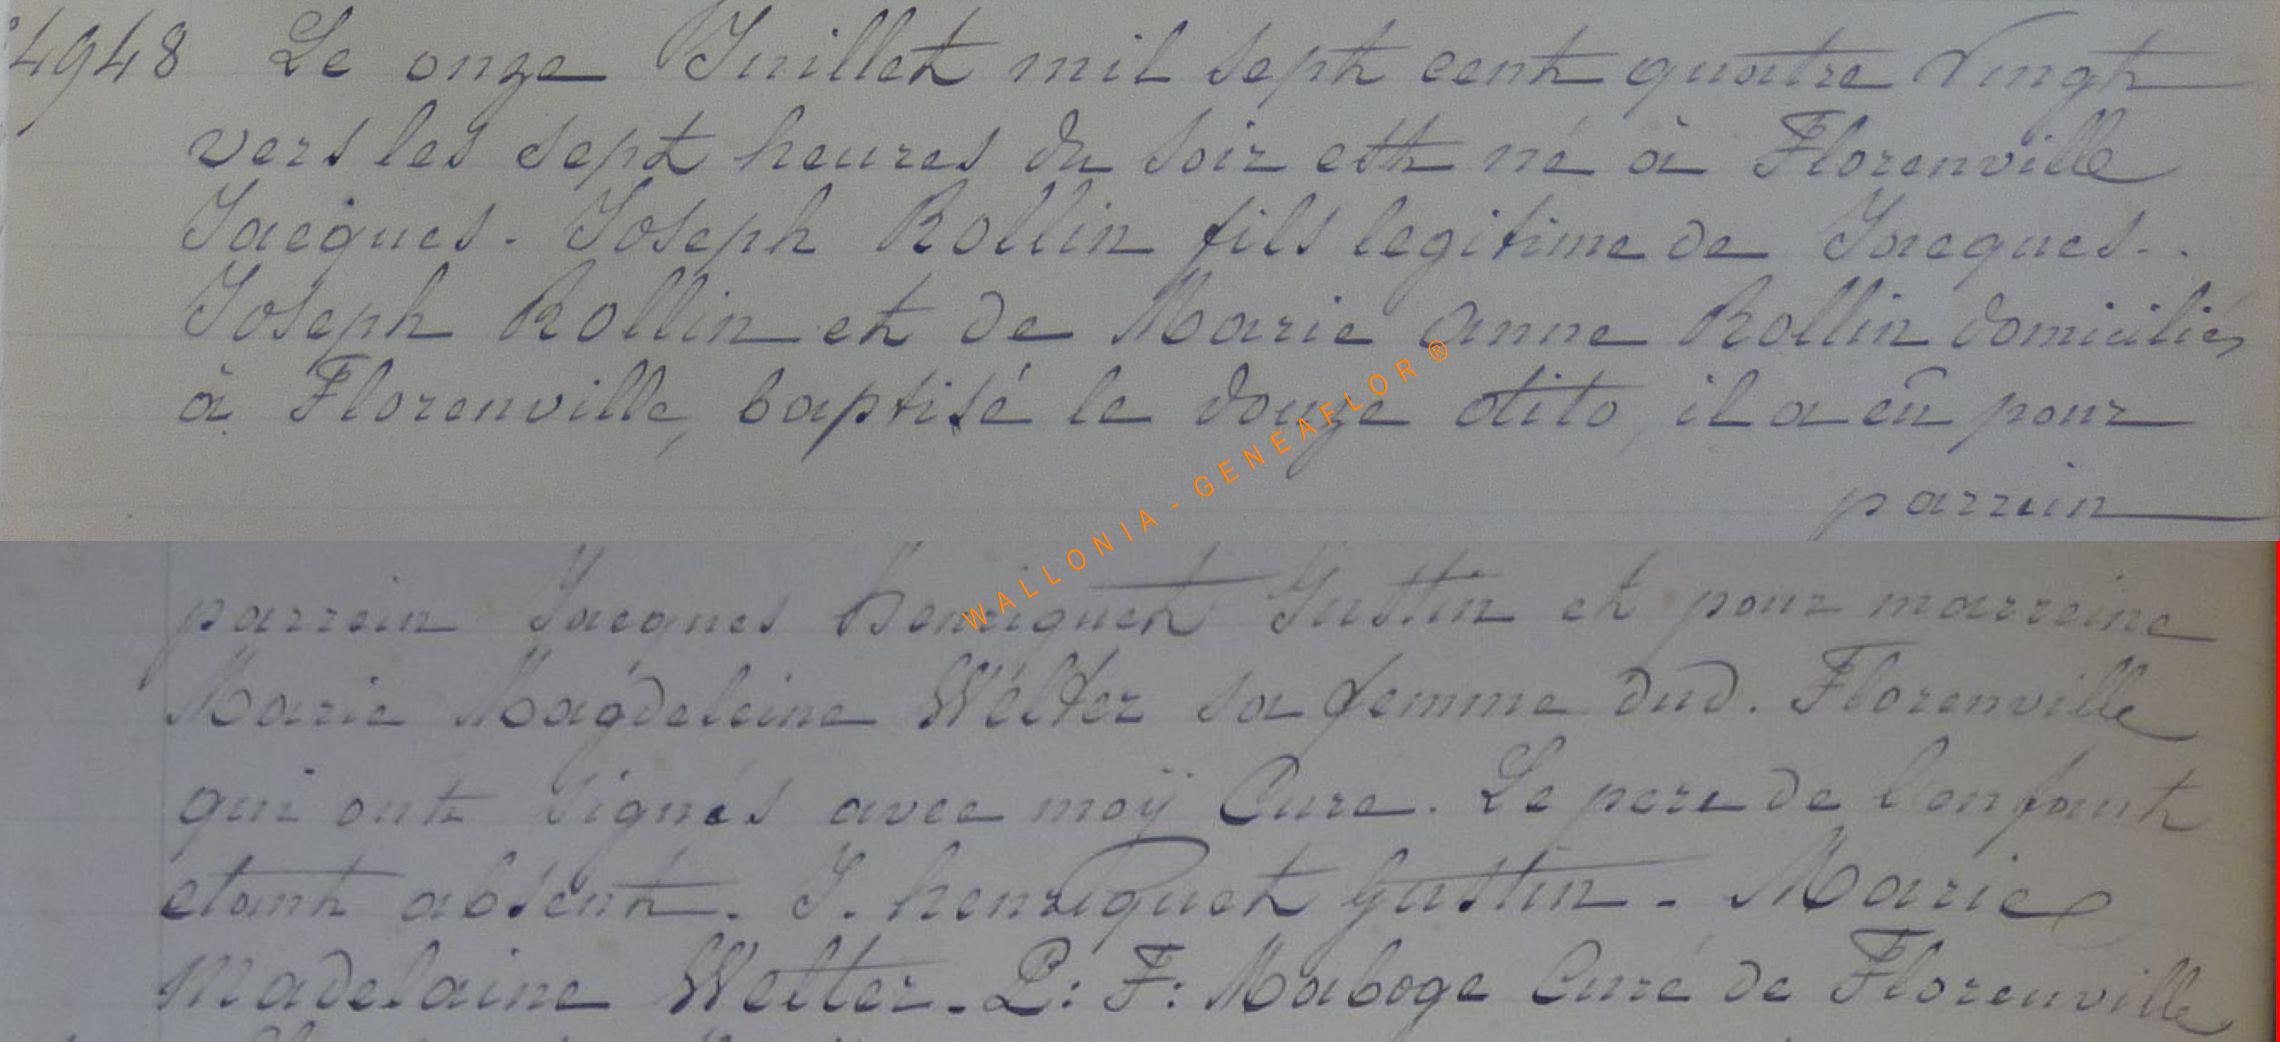 4948 Le onze Juillet mil sept cent quatre vingt
vers les sept heures du soir est né à Florenville
Jacques. Joseph Rollin fils legitime de Jacques..
Joseph Rollin et de Marie anne Rollin domiciliés
à Florenville, baptisé le douze dito, il a eû pour
parrein
parrein Jacques Henriquet Gustin et pour marreine
Marie Magdeleine Wélter sa femme dud. Florenville
qui ont signés avec moÿ Curé. Le pere de l'enfant
etant absent. J. henriquet Gustin. Marie
Madelaine Welter. P: F: Maboge Curé de Florenville
WALLONIA - GENEAFLOR ®